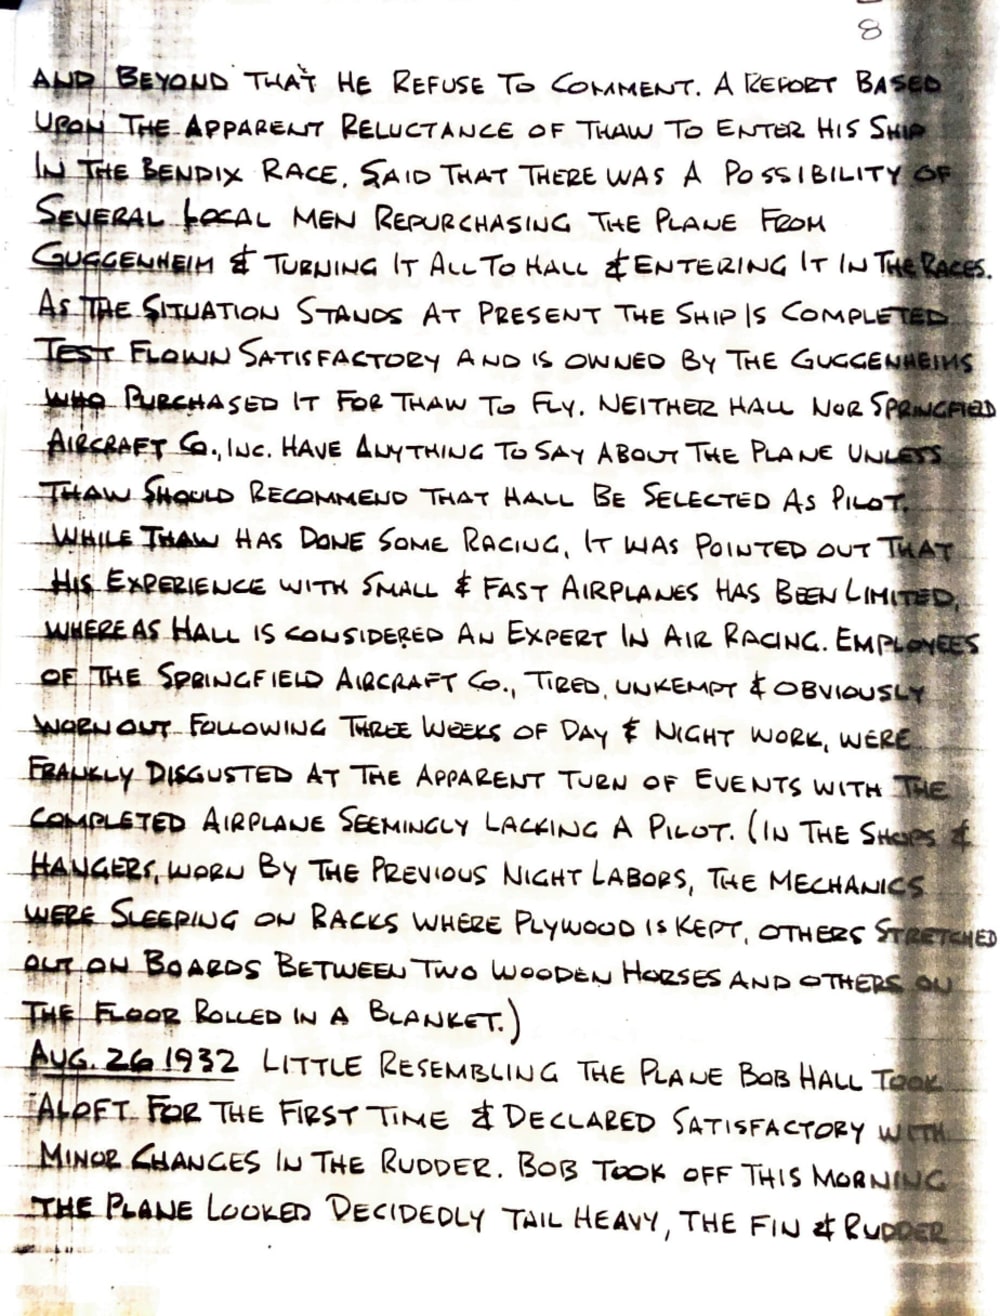 8
AND BEYOND THAT HE REFUSE TO COMMENT. A REPORT BASED
UPON THE APPARENT RELUCTANCE OF THAW TO ENTER HIS SHIP
IN THE BENDIX RACE, SAID THAT THERE WAS A POSSIBILITY OF
SEVERAL LOCAL MEN REPURCHASING THE PLANE FROM
GUGGENHEIM & TURNING IT ALL TO HALL & ENTERING IT IN THE RACES.
AS THE SITUATION STANDS AT PRESENT THE SHIP IS COMPLETED
TEST FLOWN SATISFACTORY AND IS OWNED BY THE GUGGENHEIMS
WHO PURCHASED IT FOR THAW TO FLY. NEITHER HALL NOR SPRINGFIELD
AIRCRAFT CO., INC. HAVE ANYTHING TO SAY ABOUT THE PLANE UNLESS
THAW SHOULD RECOMMEND THAT HALL BE SELECTED AS PILOT.
WHILE THAW HAS DONE SOME RACING, IT WAS POINTED OUT THAT
HIS EXPERIENCE WITH SMALL & FAST AIRPLANES HAS BEEN LIMITED,
WHEREAS HALL IS CONSIDERED AN EXPERT IN AIR RACING. EMPLOYEES
OF THE SPRINGFIELD AIRCRAFT CO., TIRED, UNKEMPT & OBVIOUSLY
WORN OUT FOLLOWING THREE WEEKS OF DAY & NIGHT WORK, WERE
FRANKLY DISGUSTED AT THE APPARENT TURN OF EVENTS WITH THE
COMPLETED AIRPLANE SEEMINGLY LACKING A PILOT. (IN THE SHOPS &
HANGERS, WORN BY THE PREVIOUS NIGHT LABORS, THE MECHANICS
WERE SLEEPING ON RACKS WHERE PLYWOOD IS KEPT, OTHERS STRETCHED
OUT ON BOARDS BETWEEN TWO WOODEN HORSES AND OTHERS ON
THE FLOOR ROLLED IN A BLANKET.)
AUG. 26 1932 LITTLE RESEMBLING THE PLANE BOB HALL TOOK
ALOFT FOR THE FIRST TIME & DECLARED SATISFACTORY WITH
MINOR CHANGES IN THE RUDDER. BOB TOOK OFF THIS MORNING
THE PLANE LOOKED DECIDEDLY TAIL HEAVY, THE FIN & RUDDER